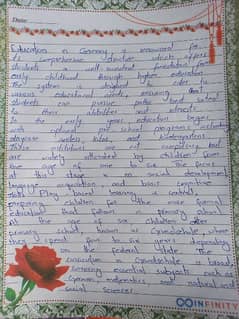 Date:
Education in Germany is renowned for
its comprehensive structure which offers
students a well-rounded foundation from
early childhood through higher education
The system is designed to cater to
various educational needs ensuring that
students can pursue paths best suited
to their abilities and interests
In the early years education begins
with optional pre-school programs including
daycare centers, kitas and kindergartens
These institutions are not compulsory but
are widely attended by children from
the age of one to six. The focus
at this stage is on social development
language acquisition and basic cognitive
skills. Play based learning is central,
preparing children for the more formal
education that follows in primary school
At the age of six children enter
primary school, known as Grundschule where
they spend four to six years depending
on the federal state. The
curriculum in Grundschule is broad,
covering essential subjects such as
German, mathematics and natural and
social sciences.
INFINITY